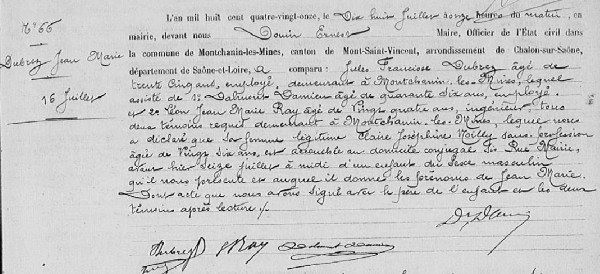 N° 66
Dubrez Jean Marie
16 Juillet
L'an mil huit cent quatre-vingt-onze, le Dix huit Juillet onze heures du matin, en
mairie, devant nous Douin Ernest Maire, Officier de l'État civil dans
la commune de Montchanin-les-Mines, canton de Mont-Saint-Vincent, arrondissement de Chalon-sur-Saône,
département de Saône-et-Loire, a comparu : Jules Francisse Dubrez âgé de
trente cinq ans, employé, demeurant à Montchanin-les-Mines, lequel
assisté de 1° Damien âgé de quarante six ans, employé
et 2° Léon Jean Marie Ray âgé de vingt quatre ans, ingénieur, tous
deux témoins requis demeurant à Montchanin-les-Mines, lequel nous
a déclaré que sa femme légitime Claire Joséphine sans profession
âgée de vingt six ans, est accouchée au domicile conjugal sis Rue Mairie,
avant hier seize juillet à midi d'un enfant du sexe masculin
qu'il nous présente et auquel il donne les prénoms de Jean Marie.
Dont acte que nous avons signé avec le père de l'enfant et les deux
témoins après lecture ./.
Dubrez Ray